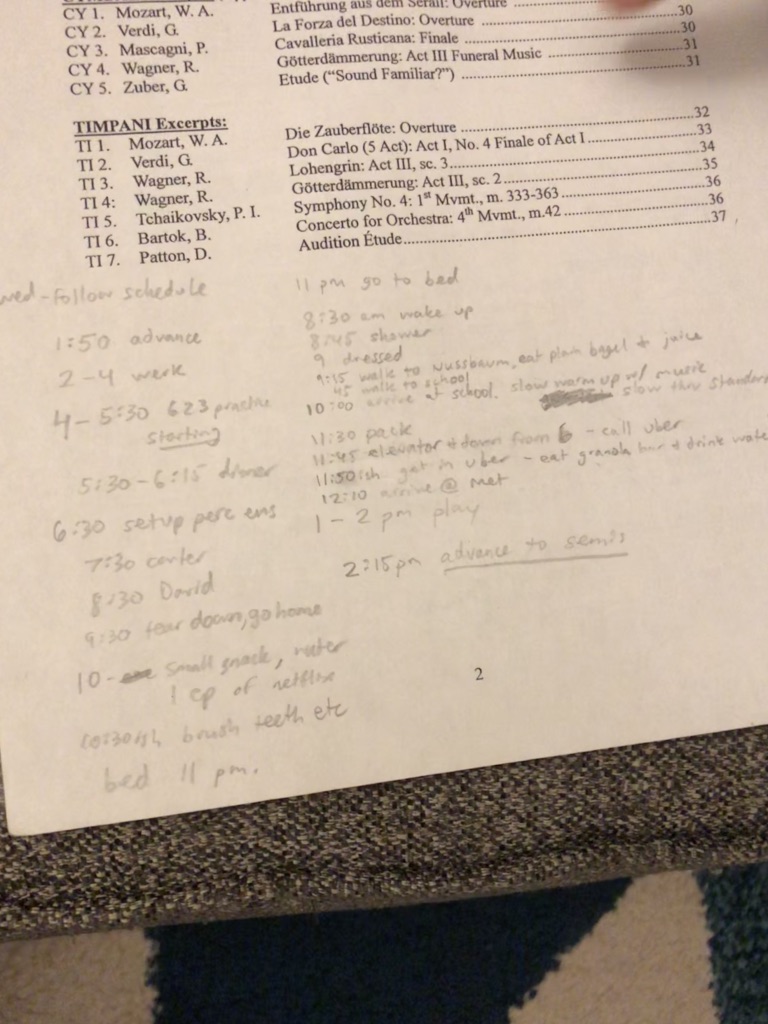 CY 1. Mozart, W. A. Entführung aus dem Serail: Overture
CY 2. Verdi, G. La Forza del Destino: Overture 30
CY 3. Mascagni, P. Cavalleria Rusticana: Finale 30
CY 4. Wagner, R. Götterdämmerung: Act III Funeral Music 31
CY 5. Zuber, G. Etude (“Sound Familiar?”) 31
TIMPANI Excerpts:
TI 1. Mozart, W. A. Die Zauberflöte: Overture 32
TI 2. Verdi, G. Don Carlo (5 Act): Act I, No. 4 Finale of Act I 33
TI 3. Wagner, R. Lohengrin: Act III, sc. 3 34
TI 4: Wagner, R. Götterdämmerung: Act III, sc. 2 35
TI 5. Tchaikovsky, P. I. Symphony No. 4: 1st Mvmt., m. 333-363 36
TI 6. Bartok, B. Concerto for Orchestra: 4th Mvmt., m.42 36
TI 7. Patton, D. Audition Étude 37
wed - follow schedule
1:50 advance
2-4 work
4-5:30 623 practice
starting
5:30-6:15 dinner
6:30 setup perc ens
7:30 carter
8:30 David
9:30 tear down, go home
10- small snack, water
1 ep of netflix
10:30ish brush teeth etc
bed 11 pm.
11 pm go to bed
8:30 am wake up
8:45 shower
9 dressed
9:15 walk to Nussbaum, eat plain bagel + juice
45 walk to school
10:00 arrive at school. slow warm up w/ music
slow thru standard
11:30 pack
11:45 elevator + down from 6 - call uber
11:50ish get in uber - eat granola bar + drink water
12:10 arrive @ met
1-2 pm play
2:15pm advance to semis
2